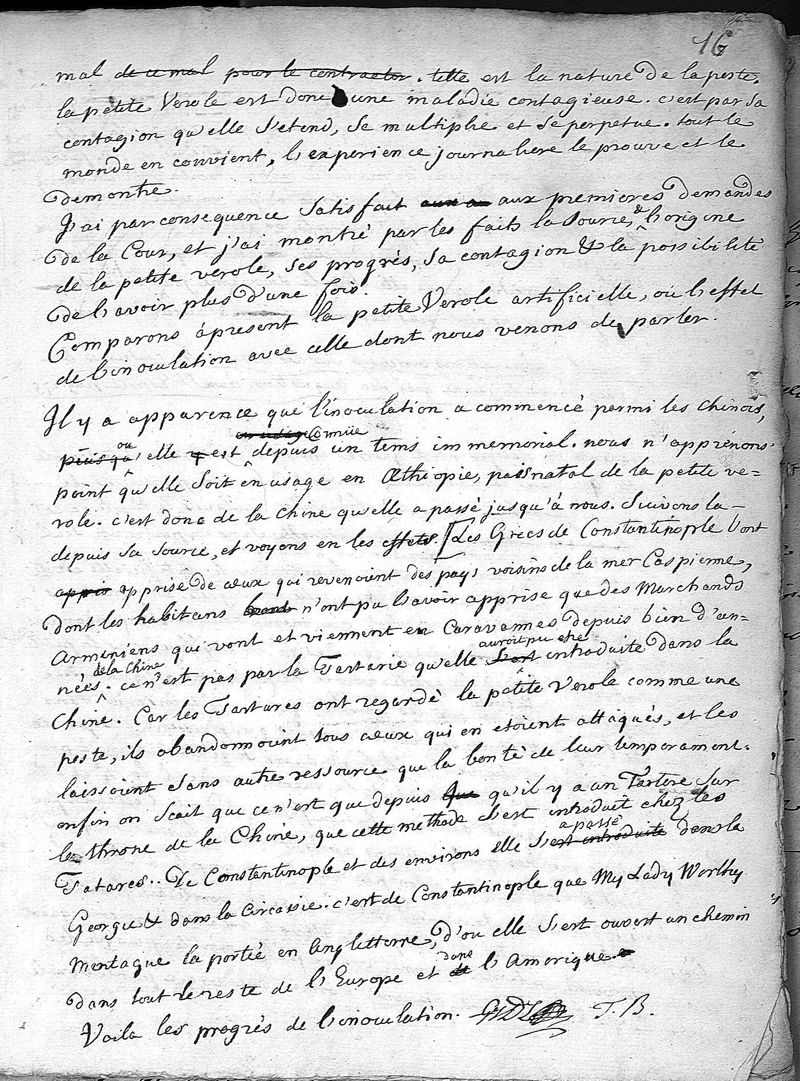 16
mal de ce mal pour le contracter. telle est la nature de la peste.
la petite Verole est donc une maladie contagieuse. c'est par sa
contagion qu'elle s'etend, se multiplie et se perpetue. tout le
monde en convient, l'experience journaliere le prouve et le
demontre.
J'ai par consequence satisfait aux premieres demandes
de la Cour, et j'ai montré par les faits la source, & l'origine
de la petite verole, ses progrés, sa contagion & la possibilité
de l'avoir plus d'une fois.
Comparons ápresent la petite Verole artificielle, ou l'effet
de l'inoculation avec celle dont nous venons de parler.
Il y a apparence que l'inoculation a commencé permi les Chinois,
puisqu' ou elle est connue depuis un tems immemorial. nous n'apprénons
point qu'elle soit en usage en Æthiopie, païs natal de la petite ve=
role. c'est donc de la Chine qu'elle a passé jusqu'à nous. Suivons la-
depuis sa source, et voyons en les effets. [Les Grecs de Constantinople l'ont
appris apprise de cœux qui revenoient des pays voisins de la mer Caspienne,
dont les habitans n'ont pu l'avoir apprise que des Marchands
Armeniens qui vont et viennent en Caravannes depuis bien d'an-
nées de la Chine. ce n'est pas par la Tartarie qu'elle s'est auroit pu etre introduite dans la
Chine. Car les Tartares ont regardé la petite Verole comme une
peste, ils abandonnoint tous cœux qui en etoient attaqués, et les
laissoient sans autre ressource que la bonté de leur temperament.
enfin on scait que ce n'est que depuis que qu'il y a un Tartare sur
le throne de la Chine, que cette methode s'est introduit chez les
Tatares.. De Constantinople et des environs elle s'est introduite a passé dans la
Georgie & dans la Circassie. c'est de Constantinople que My Lady Worthy
Montague la portée en Angletterre, d'ou elle s'est ouvert un chemin
dans tout le reste de l'Europe et de dans l'Amerique.
Voila les progrés de l'inoculation. T. B.